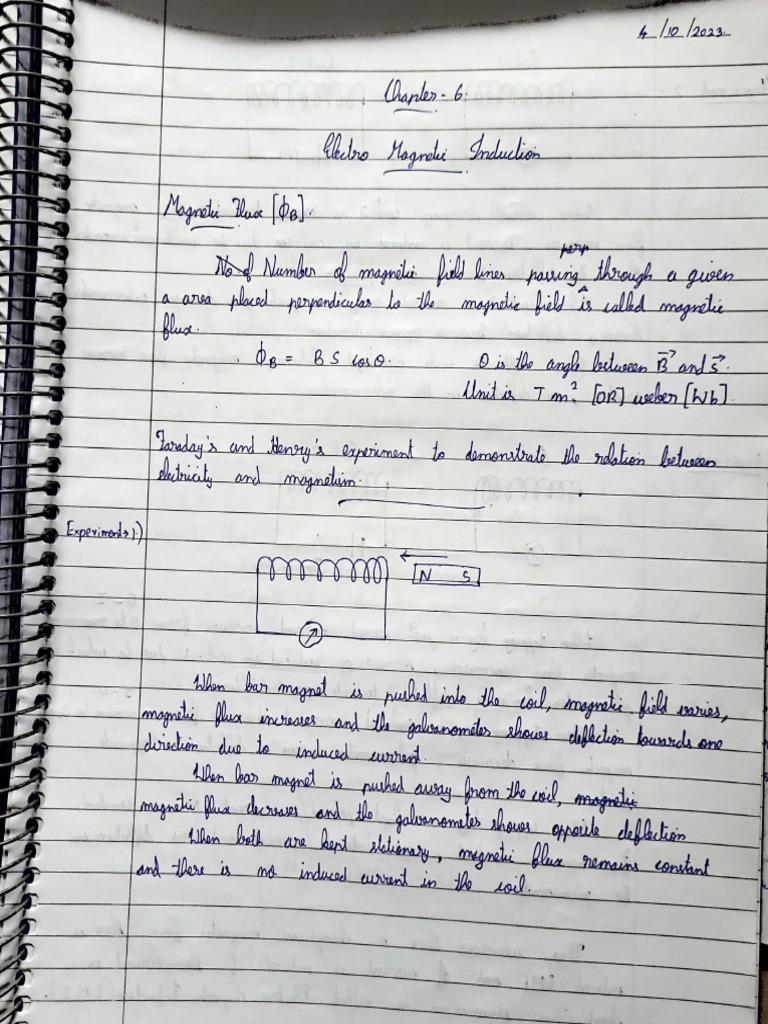 4/10/2023
Chapter - 6.
Electro Magnetic Induction
Magnetic Flux [ΦB].
perp
No of Number of magnetic field lines passing through a given
a area placed perpendicular to the magnetic field is called magnetic
flux.
ΦB = B S cosθ. θ is the angle between B⃗ and S⃗.
Unit is T m² [OR] weber [Wb].
Faraday's and Henry's experiment to demonstrate the relation between
electricity and magnetism.
Experiments 1:)
N S
When bar magnet is pushed into the coil, magnetic field varies,
magnetic flux increases and the galvanometer shows deflection towards one
direction due to induced current.
When bar magnet is pushed away from the coil, magnetic
magnetic flux decreases and the galvanometer shows opposite deflection
When both are kept stationary, magnetic flux remains constant
and there is no induced current in the coil.